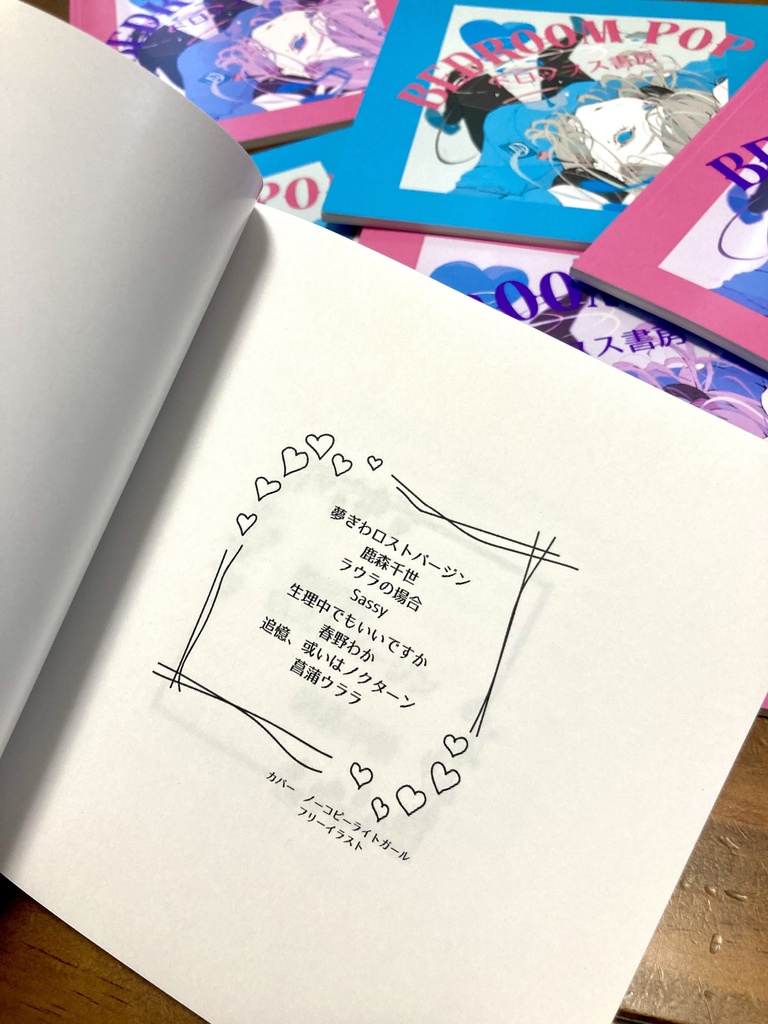 BEDROOM POP
ドロップス書房
夢ぎわロストバージン
鹿森千世
ラウラの場合
Sassy
生理中でもいいですか
春野わか
追憶、或いはノクターン
菖蒲ウララ
カバー ノーコピーライトガール
フリーイラスト